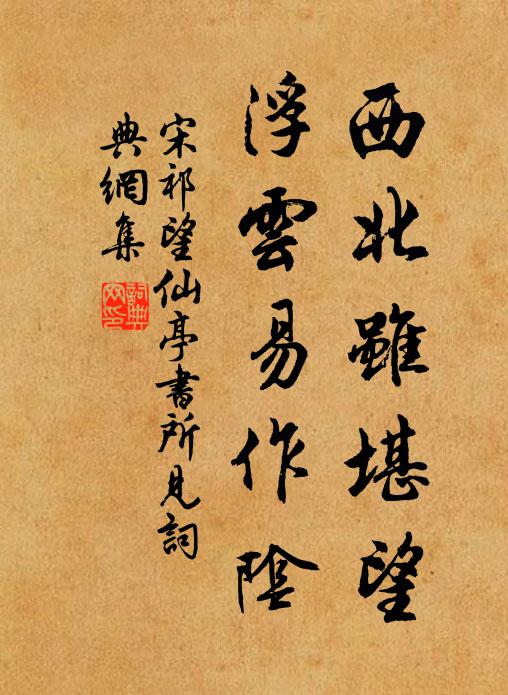 西北雖堪望
浮雲易作陰
宋祁望仙亭書所見詞
典網集
詞典網印